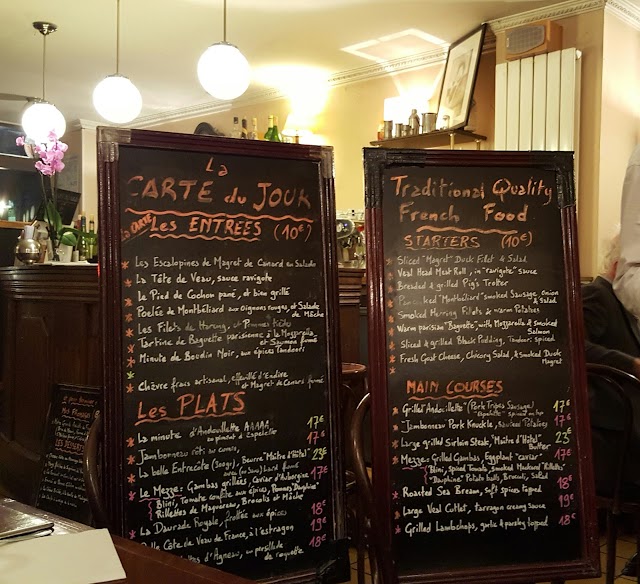 La
CARTE du JOUR
La CARTE
Les ENTREES (10€)
Les Escalopines de Magret de Canard en Salade
La Tête de Veau, sauce ravigote
Le Pied de Cochon pané, et bien grillé
Poelée de Montbéliard aux Oignons rouges, et Salade de Mâche
Les Filets de Hareng, et Pommes tièdes
Tartine de Baguette parisienne à la Mozzarella et Saumon fumé
Minute de Boudin Noir, aux épices Tandoori
Chèvre frais artisanal, effeuillé d'Endive et Magret de Canard fumé
Les PLATS
La minute d'Andouillette AAAAA, 17€
au piment d'Espelette
Jambonneau rôti au cumin, 17€
La belle Entrecôte (300g), Beurre "Maître d'Hôtel" 23€
Le Mezze: Gambas grillées, Caviar d'Aubergine 17€
Blini, Tomate confite aux épices, Pommes Dauphine
Rillettes de Maquereau, Brocolis et Mâche
La Daurade Royale, frottée aux épices 18€
Belle Côte de Veau de France, à l'estragon 19€
d'Agneau, en persillade de roquette 18€
Traditional Quality
French Food
STARTERS (10€)
Sliced "Magret" Duck Filet & Salad
Veal Head Meat Roll, in "ravigote" sauce
Breaded & grilled Pig's Trotter
"Montbéliard" smoked Sausage, Onion & Salad
Smoked Herring Filets & warm Potatoes
Warm parisian "Baguette", with Mozzarella & smoked Salmon
Sliced & grilled Black Pudding, Tandoori spiced
Fresh Goat Cheese, Chicory Salad, & Smoked Duck Magret
MAIN COURSES
Grilled "Andouillette" (Pork Tripes Sausage) 17€
Jambonneau Pork Knuckle, Potatoes 17€
Large grilled Sirloin Steak, "Maître d'Hôtel" Butter 23€
Mezze: Grilled Gambas, Eggplant "caviar" 17€
"Blini", Spiced Tomato, Smoked Mackerel "Rillettes"
"Dauphine" Potato balls, Broccoli, Salad
Roasted Sea Bream, soft spices topped 18€
Large Veal Cutlet, tarragon creamy sauce 19€
Grilled Lambchops, garlic & parsley topped 18€